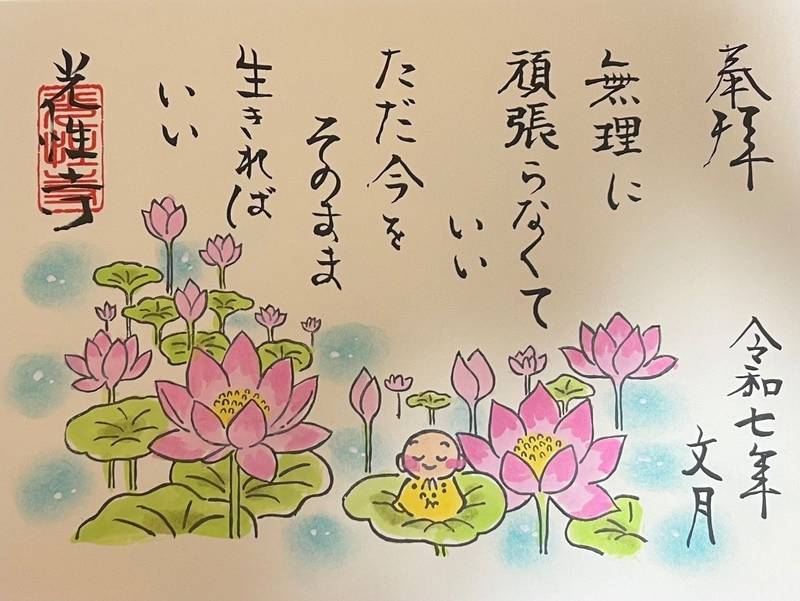 奉拝
無理に
頑張らなくて
いい
ただ今を
そのまま
生きれば
いい
光性寺
令和七年
文月